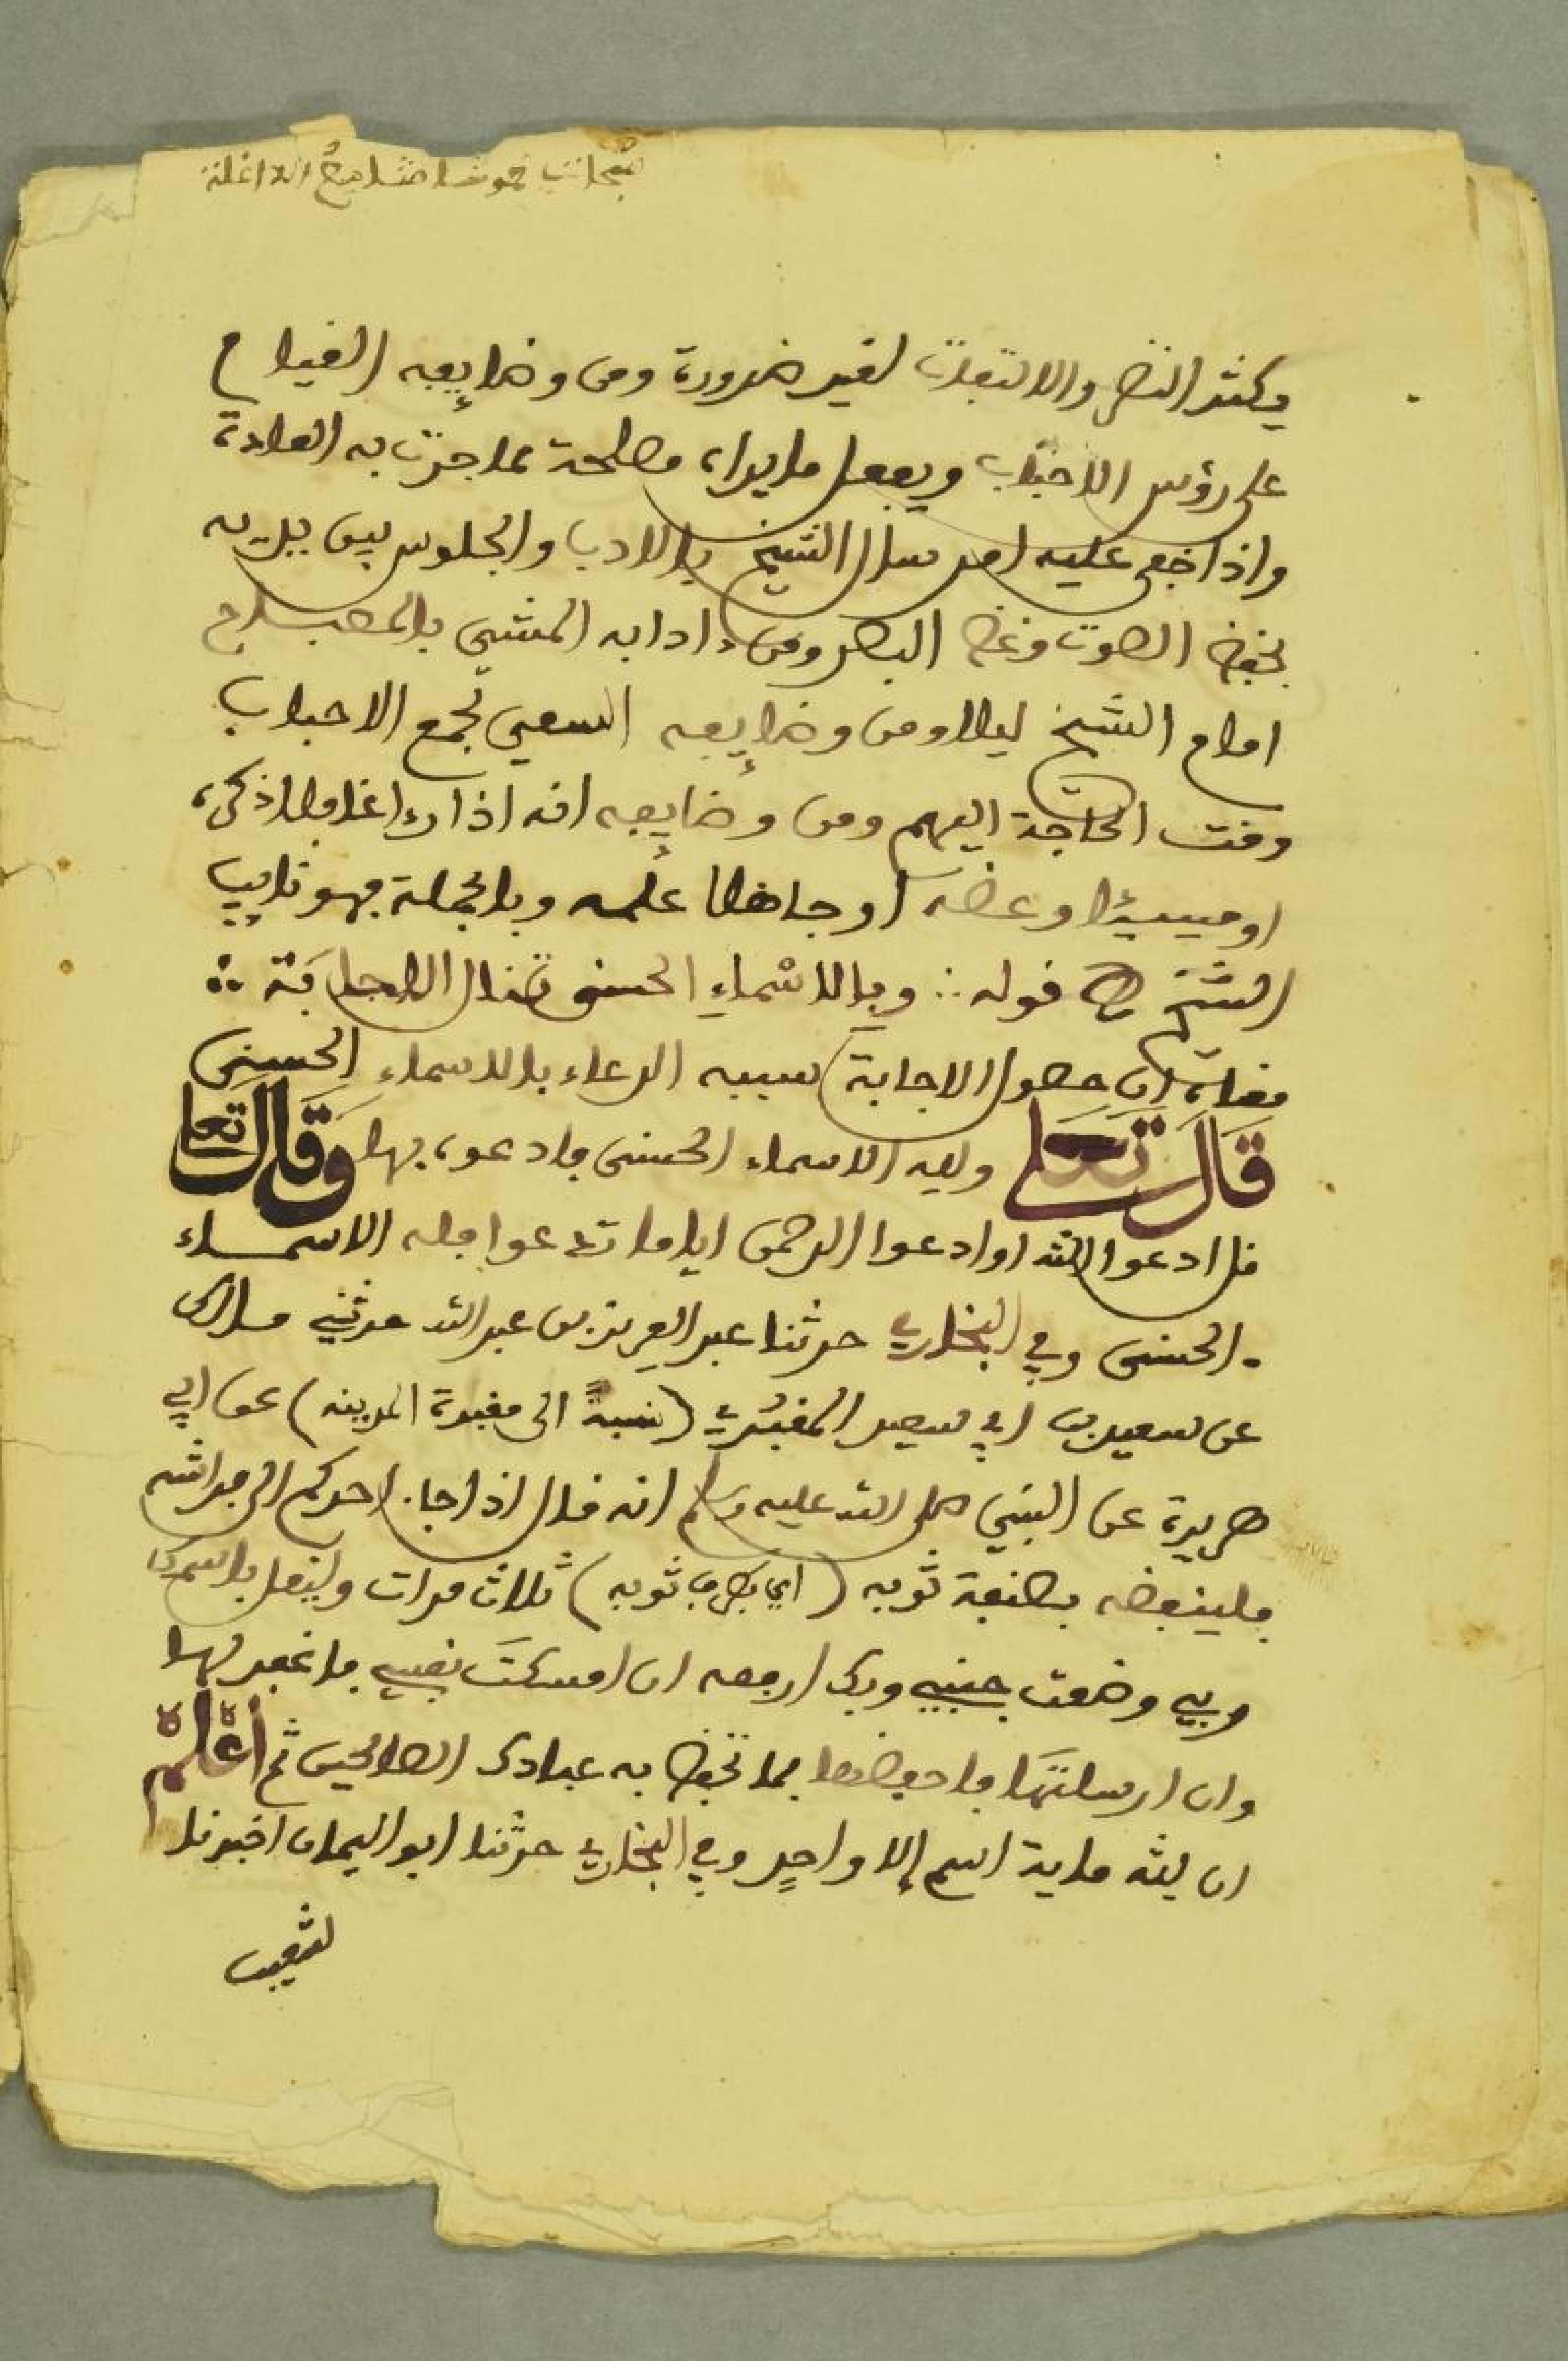 يكثر النظر والالتفات لغير ضرورة ومن وظايفه القيام
على رؤس الاحباب ويفعل ما يراه مصلحة مما جرت به العادة
واذا خفى عليه امر سال الشيخ بالادب والجلوس بين يديه
بخفض الصوت وغض البصر ومن ءادابه المشي بالمصباح
امام الشيخ ليلا ومن وظايفه السعي لجمع الاحباب
وقت الحاجة اليهم ومن وظايفه انه اذا راء اغافلا ذكره
او مسيئا وعظه او جاهلا علمه وبالجملة فهو نايب
الشيخ قوله ∴ وبالاسْماءِ الحسنى تنال الاجابَة ∴
معناه ان حصول الاجابة سببه الدعاء بالاسماء الحسنى
قَالَ تَعَلى ولله الاسماء الحسنى فادعوه بها وَقَالَ تعا
قل ادعوا الله او ادعوا الرحمن اياما تدعوا فله الاسماء
الحسنى وفي البخاري حدثنا عبد العزيز بن عبد الله حدثني مالك
عن سعيد بن ابي سعيد المقبُري (نسبةً الى مقبرة المدينه) عن ابي
هريرة عن النبي صلى الله عليه وسلم انه قال اذا جاء احدكم الى فراشه
فلينفضه بصنفة ثوبه (اي بطرف ثوبه) ثلاث مرات وليقل باسمك
ربي وضعت جنبي وبك ارفعه ان امسكتَ نفسي فاغفر لها
وان ارسلتَها فاحفظها بما تحفظ به عبادك الصالحين ثم أعْلمْ
ان لله ماية اسم إلا واحدٍ وفي البخاري حدثنا ابو اليمان اخبرنا
شعيب